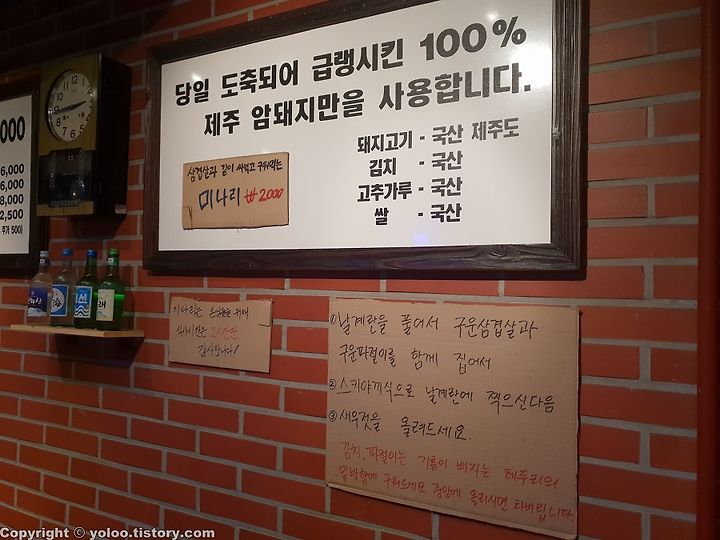 당일 도축되어 급랭시킨 100%
제주 암돼지만을 사용합니다.
돼지고기 - 국산 제주도
김치 - 국산
고추가루 - 국산
쌀 - 국산
삼겹살과 같이 싸먹고 구워먹는
미나리 ₩2000
000
6,000
6,000
8,000
2,500
추가 500)
기다리는 손님들을 위해
식사시간은 2시간만
감사합니다!
① 날계란을 풀어서 구운삼겹살과
구운파절이를 함께 집어서
② 스키야끼식으로 날계란에 찍으신다음
③ 새우젓을 올려드세요.
김치, 파절이는 기름이 빠지는 테두리의
밑방향에 구워드세요 중앙에 올리시면 타버립니다.
Copyright © yoloo.tistory.com